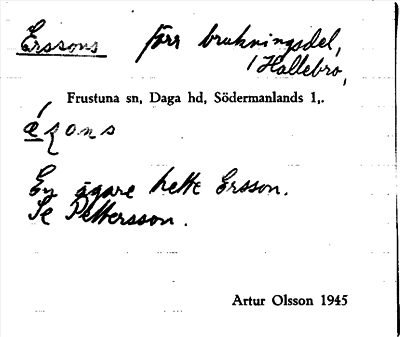 Erssons förr brukningsdel,
i Hallebro,
Frustuna sn, Daga hd, Södermanlands l,.
En ägare hette Ersson.
Se Pettersson.
Artur Olsson 1945